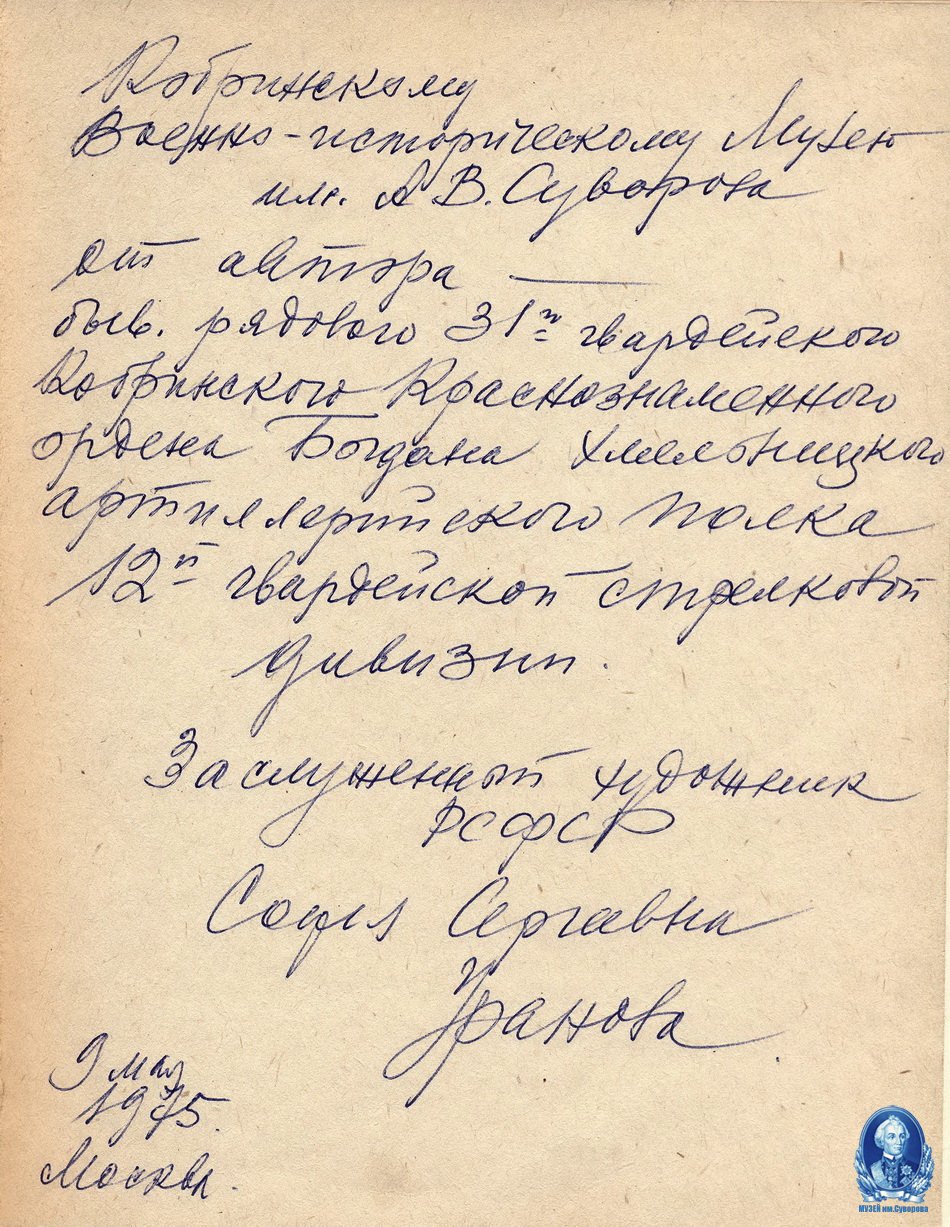 Кобринскому
Военно-историческому Музею
им. А В. Суворова
от автора —
быв. рядового 31го гвардейского
Кобринского Краснознаменного
ордена Богдана Хмельницкого
артиллерийского полка
12й гвардейской стрелковой
дивизии.
Заслуженный художник
РСФСР
Софья Сергеевна
Уранова
9 мая
1975.
Москва.
МУЗЕЙ им.Суворова